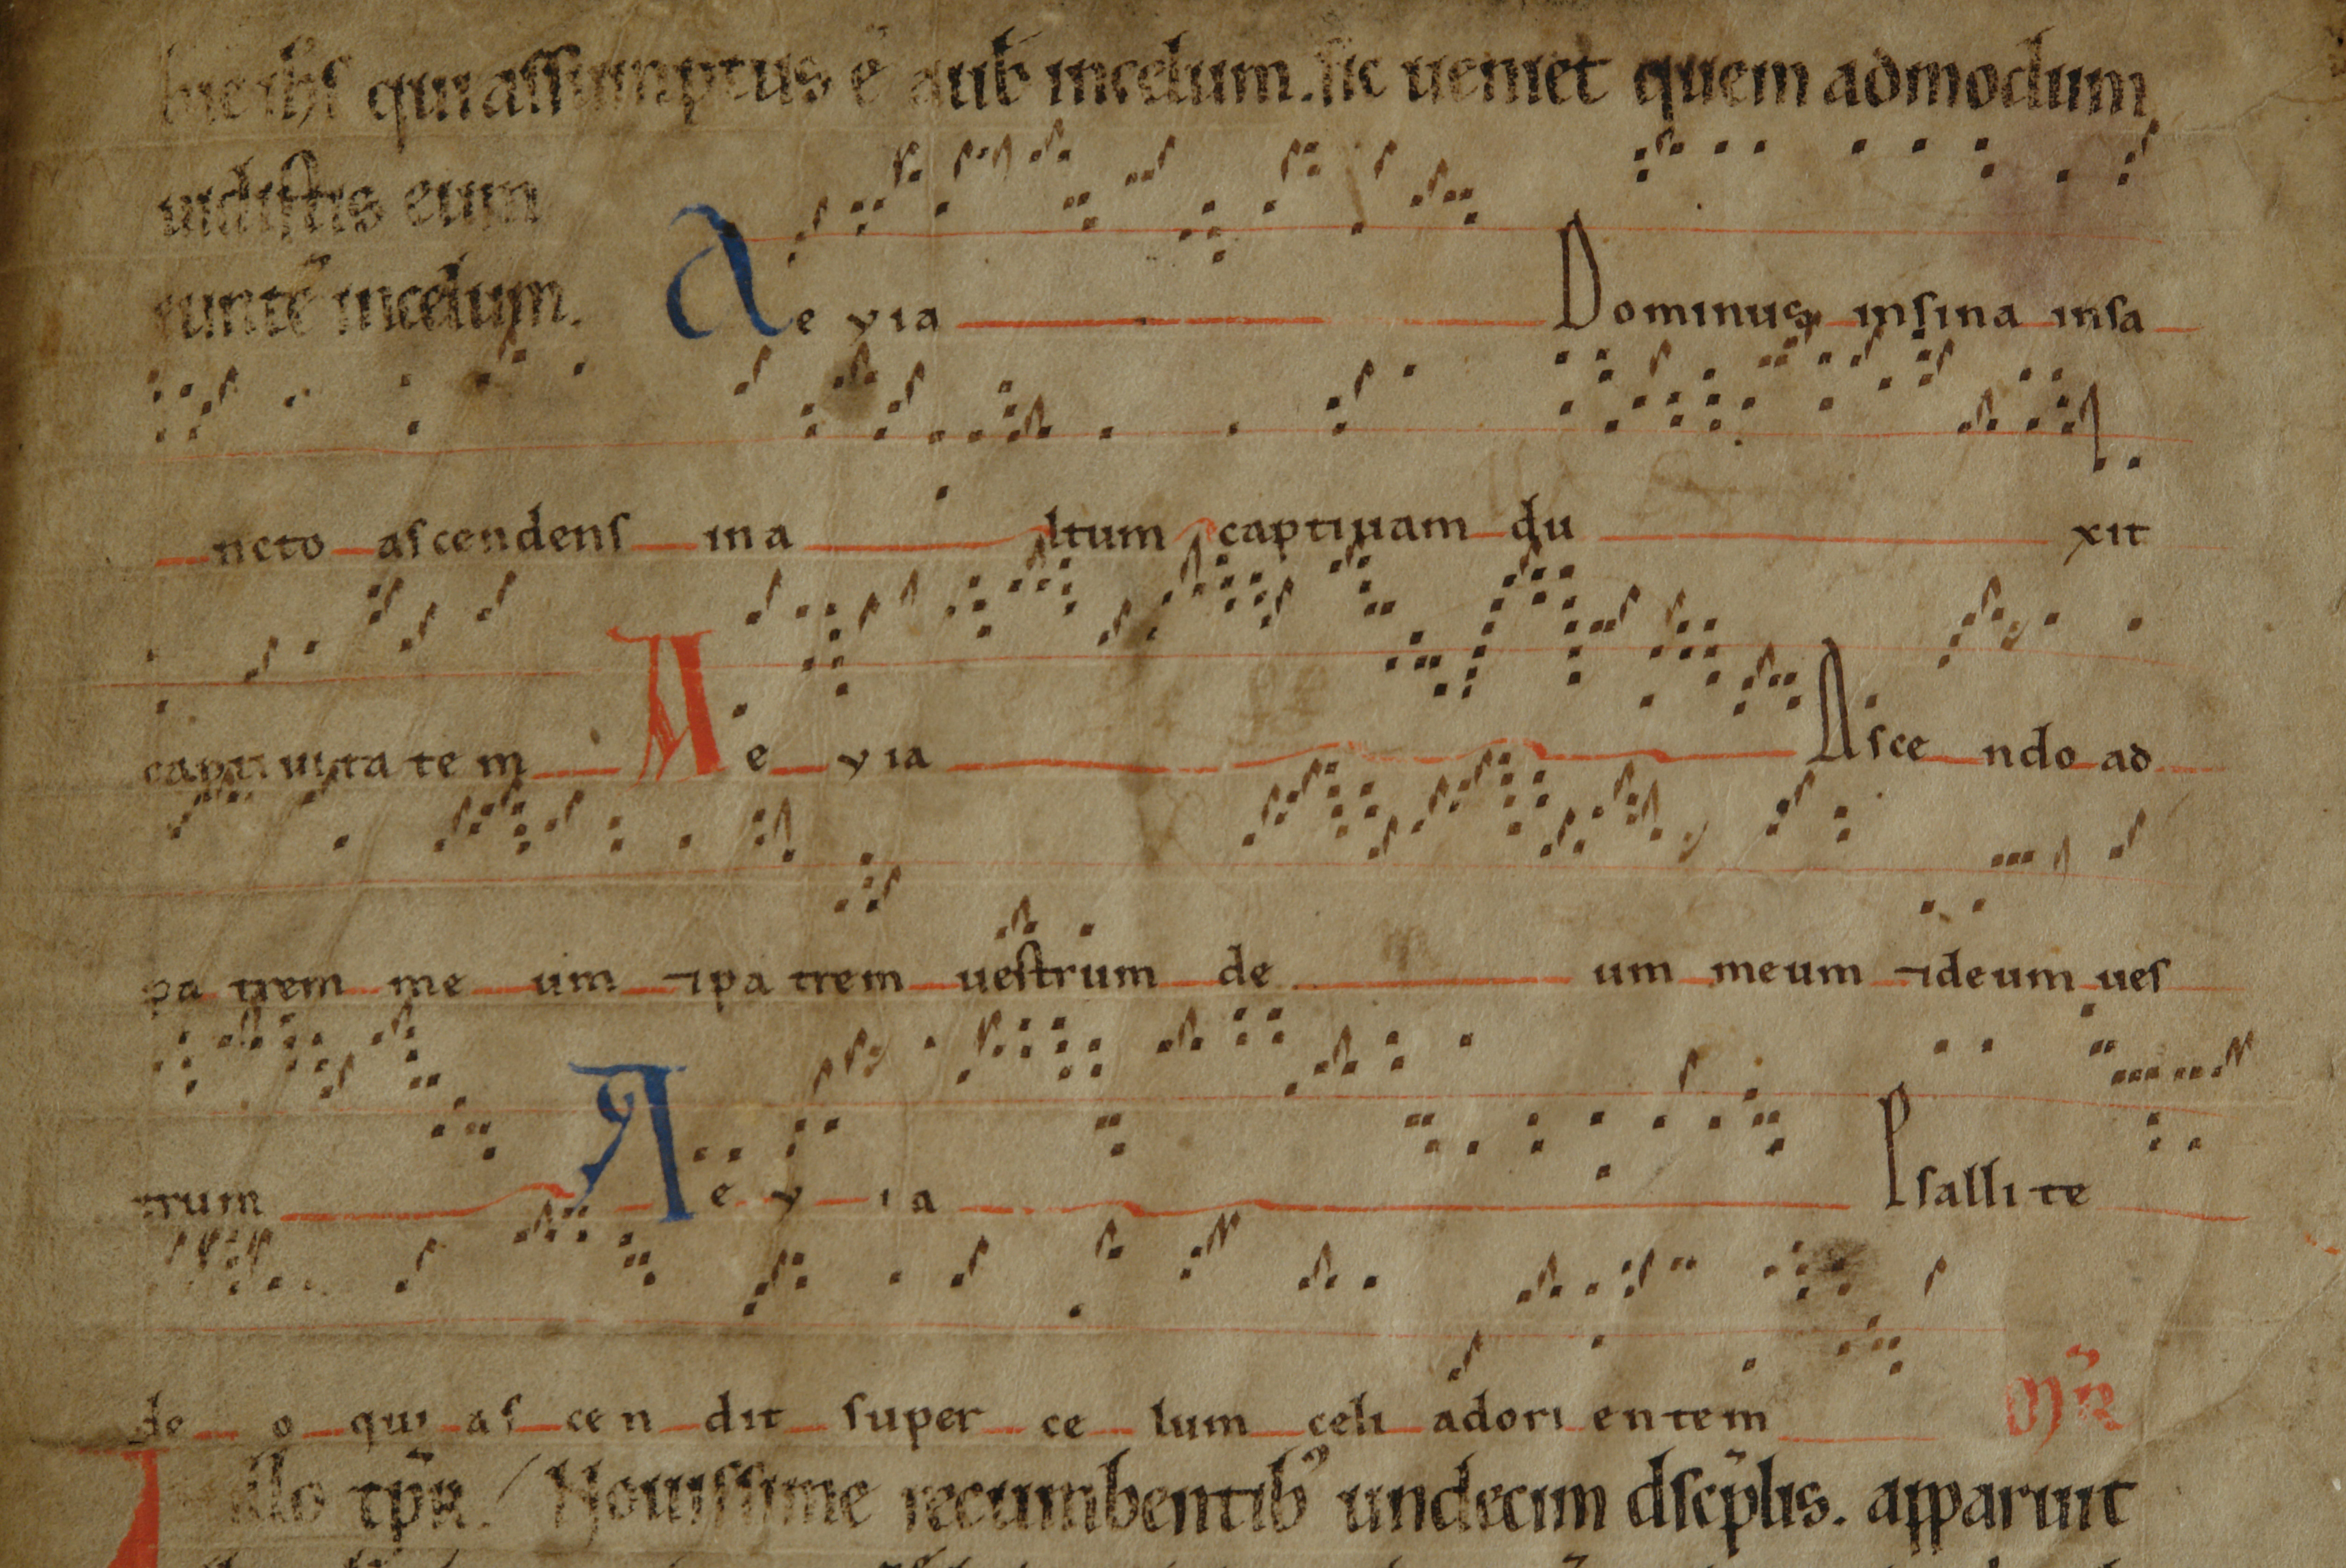 hic ihs qui assumptus ē a uob incelum. sic ueniet quem admodum
uidistis eum
euntē incelum. Ae yia Dominus insina insa
ncto ascendens ina ltum captiuam du xit
captiuita te m Ae yia Asce ndo ad
pa trem me um ⁊pa trem uestrum de um meum ⁊deum ues
trum Ae y ia Psalli te
de o qui as cen dit super ce lum celi adori entem
illo tp̄r. Nouissime recumbentibꝰ undecim discp̄lis. apparuit